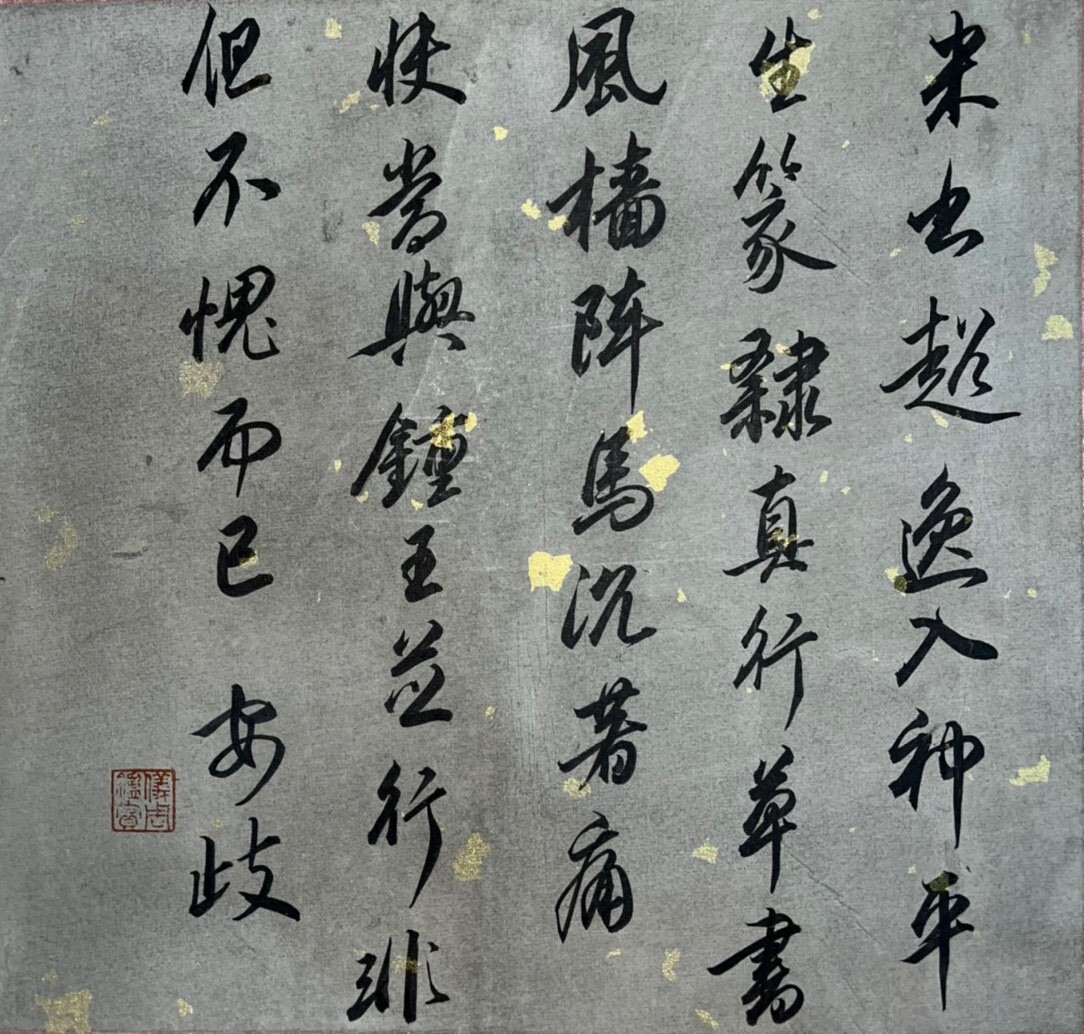 米书超逸入神平
生篆隸真行草書
風檣阵馬沉著痛
快當與鍾王並行非
但不愧而已 安歧
儀周鑑賞